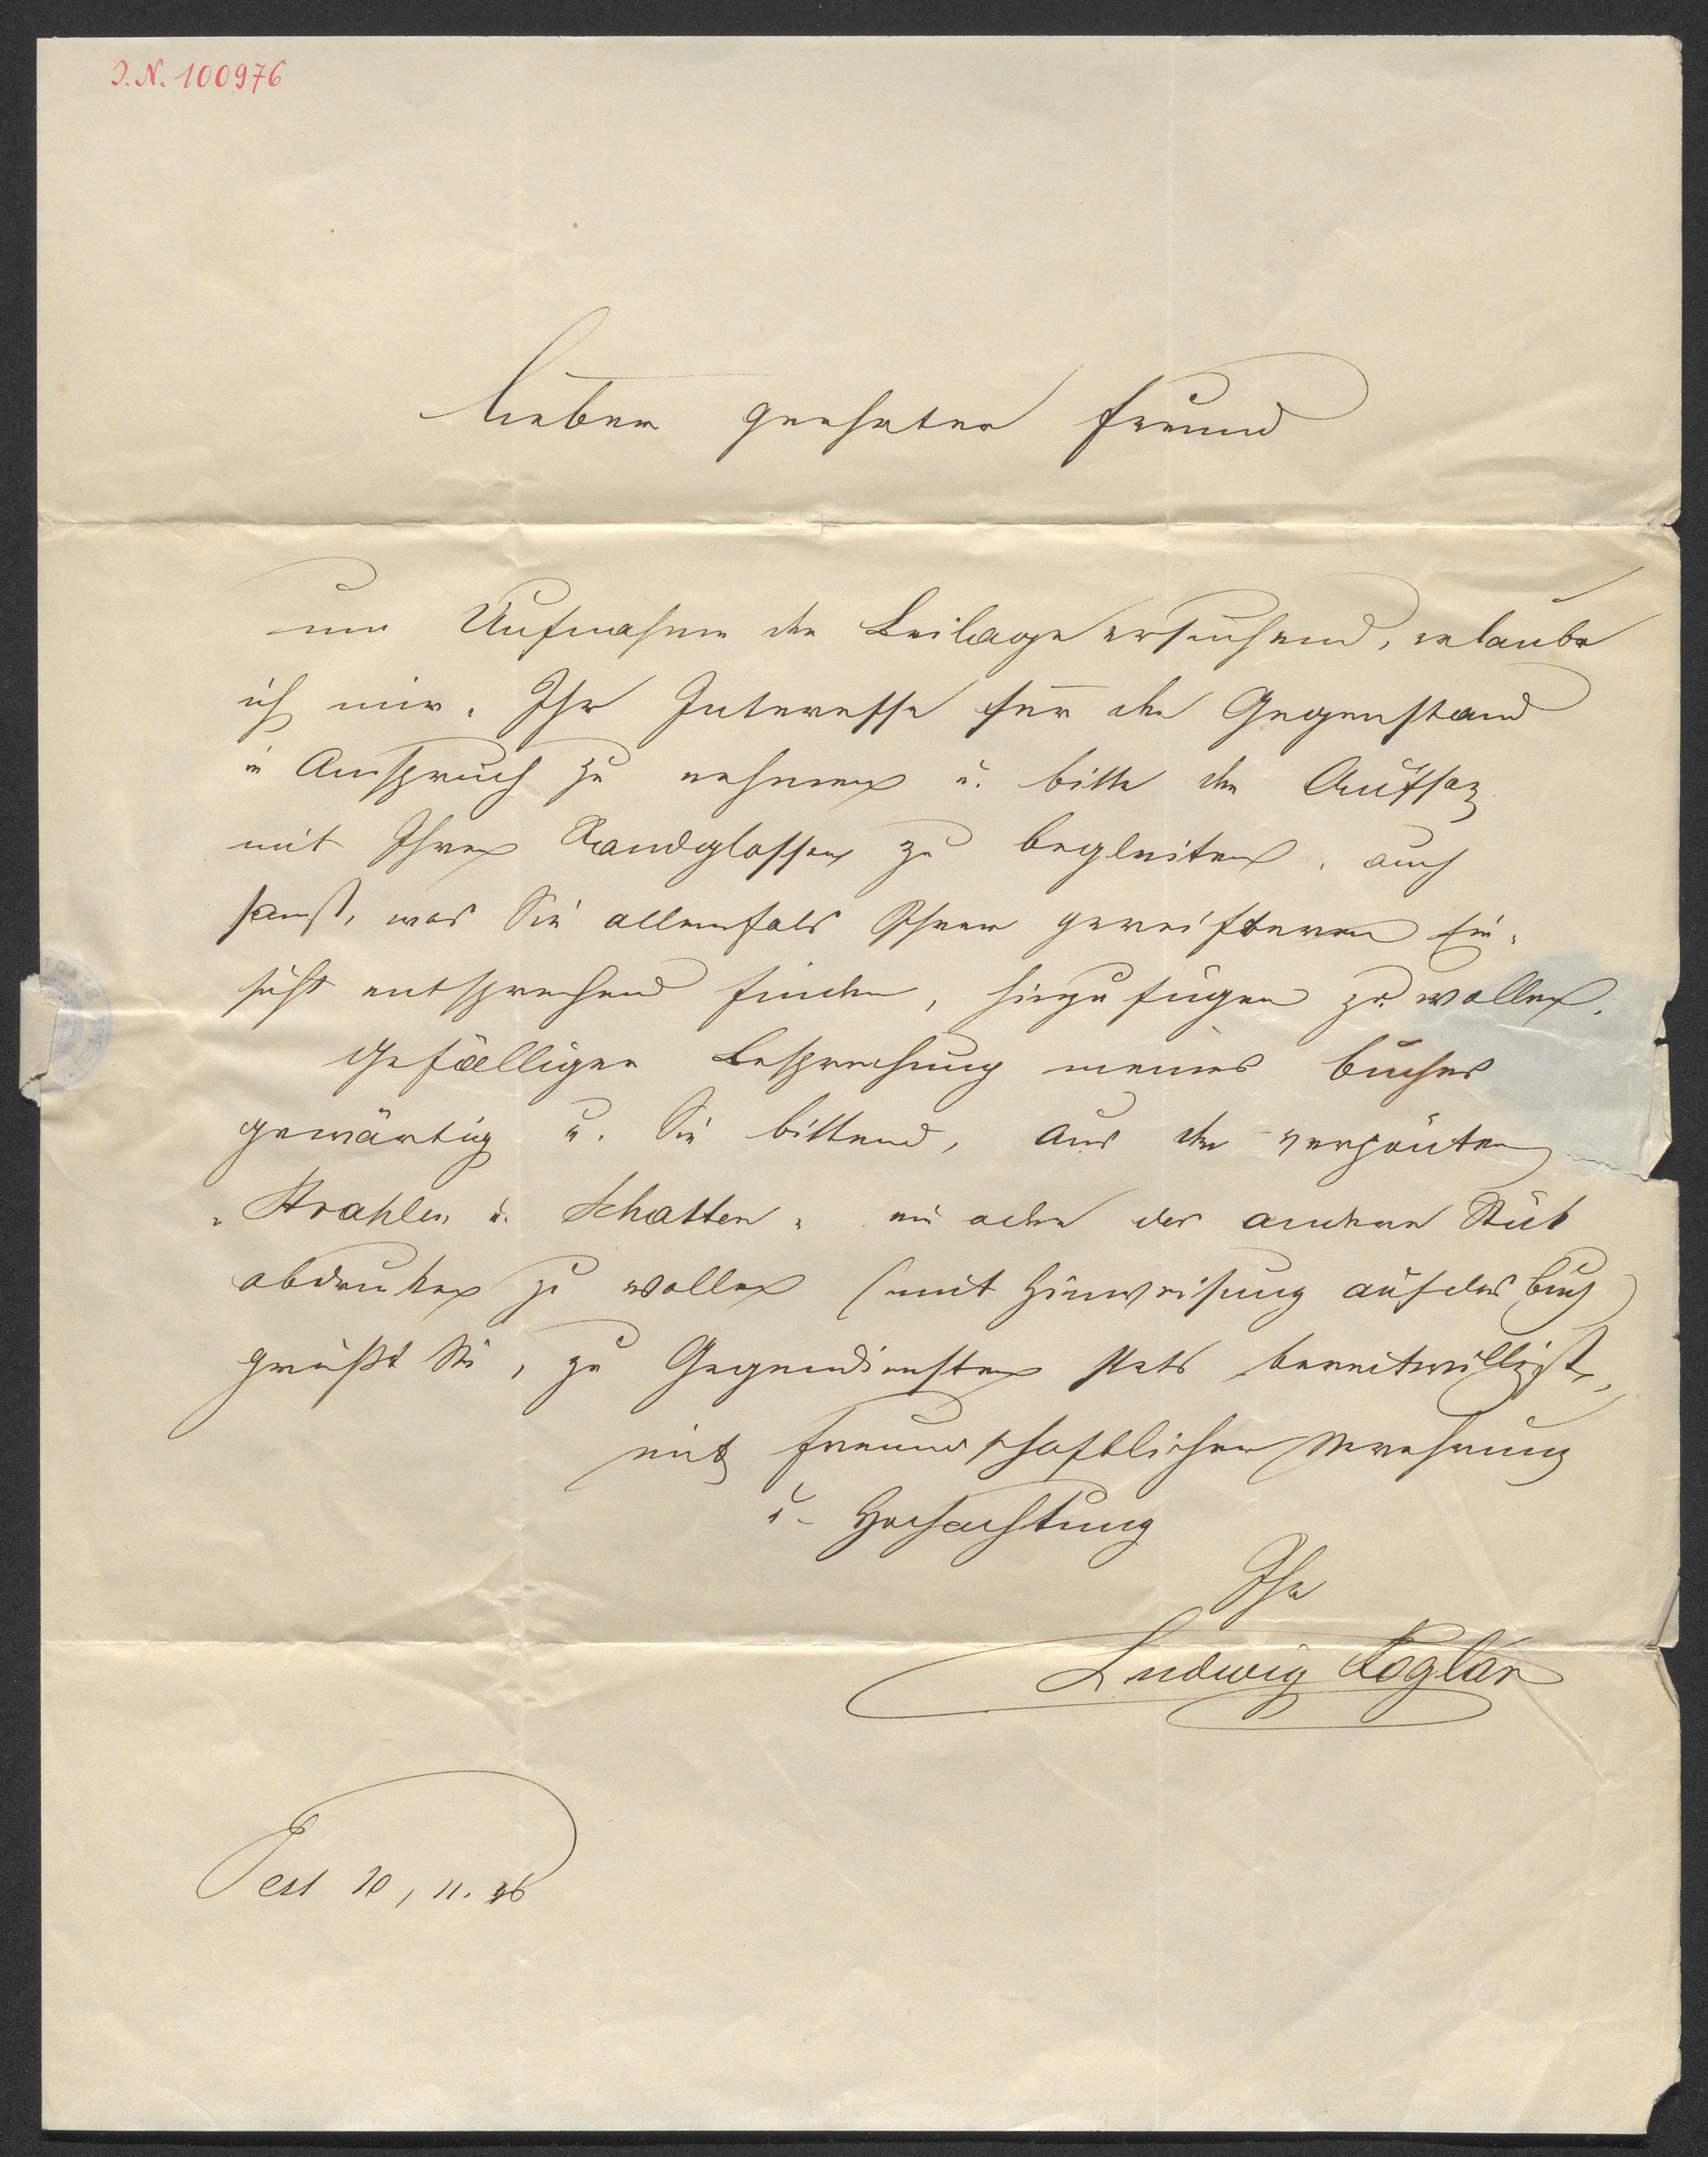 I. N. 100976
Lieber geehrter Freund
um Aufnahme der Beilage ersuchend, erlaube
ich mir, Ihr Interesse für den Gegenstand
in Anspruch zu nehmen u. bitte den Aufsaz
mit Ihren Randglossen zu begleiten, auch
sonst, was Sie allenfals Ihrer gereifteren Ein-
sicht entsprechend finden, hinzufügen zu wollen.
Gefälligen Besprechung meines Buches
gewärtig u. Sie bittend, aus den
"Strahlen u. Schatten" ein oder das andere Stük
abdruken zu wollen (mit Hinweisung auf das Buch)
grüßt Sie, zu Gegendiensten stets bereitwilligst,
mit freundschaftlicher Verehrung
u. Hochachtung
Ihr
Ludwig Foglár
Pest 10, 11. 46